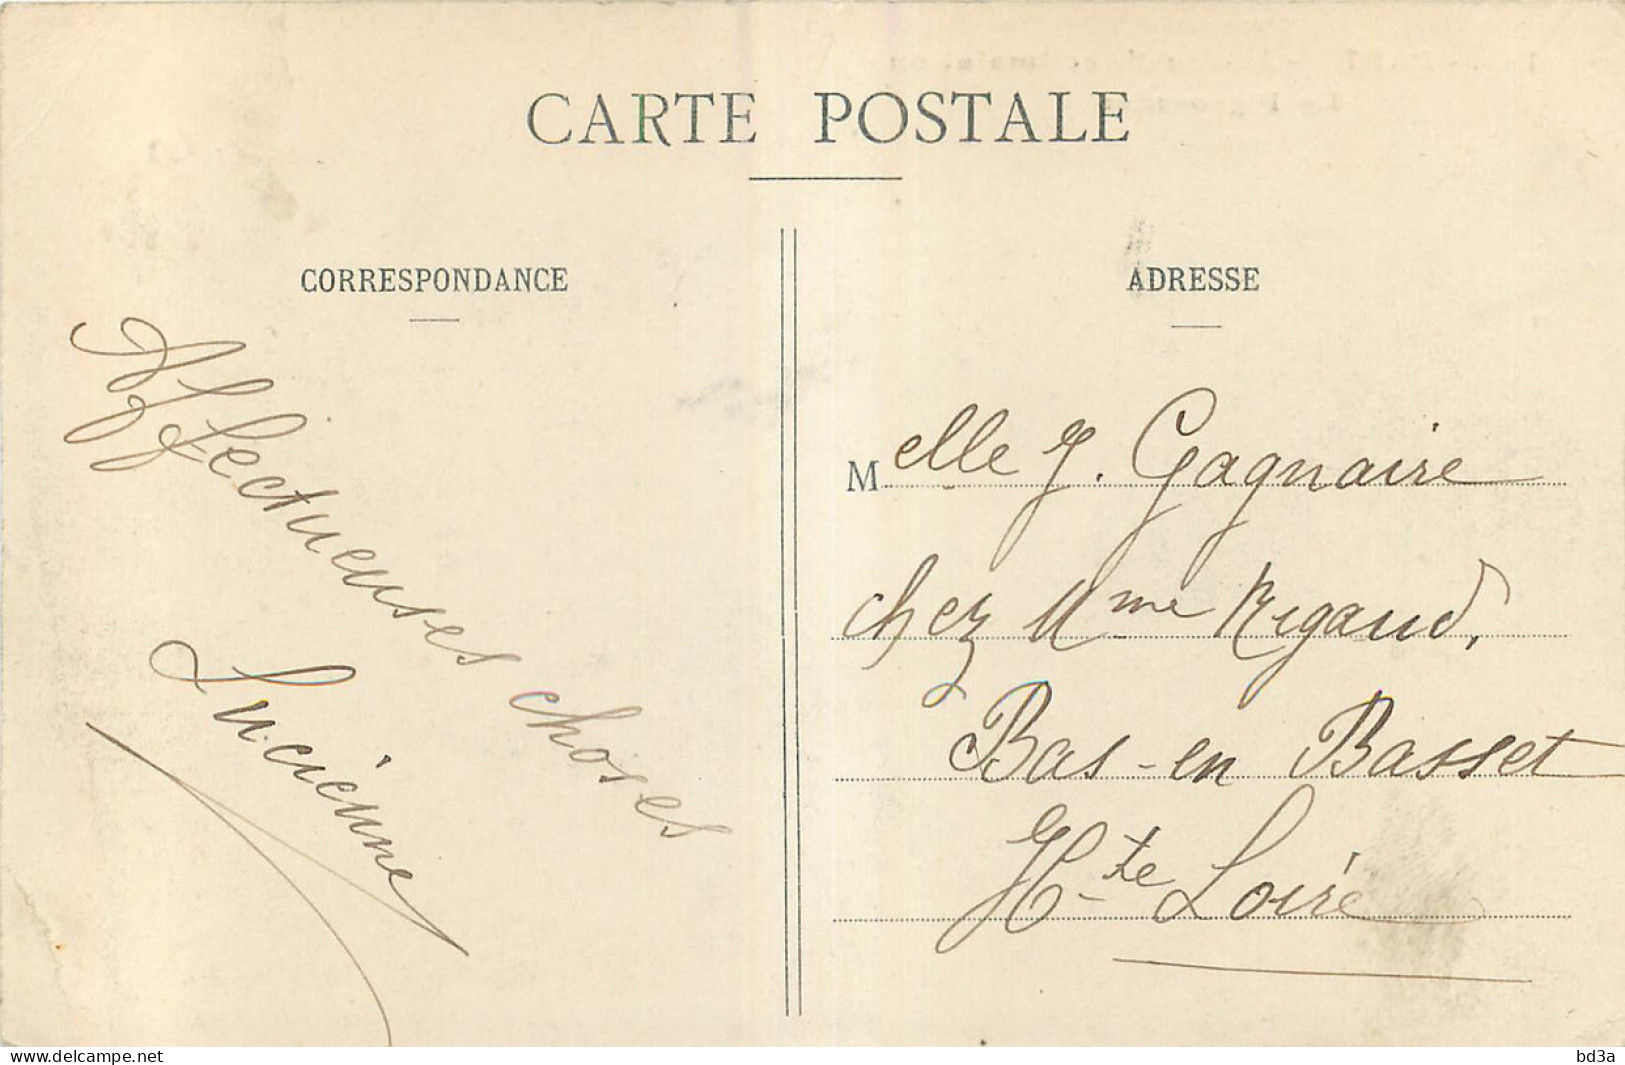 CARTE POSTALE
CORRESPONDANCE
Affectueuses choses
Lucienne
ADRESSE
Melle J. Gagnaire
chez Mme Rigaud,
Bas-en Basset
Hte Loire
www.delcampe.net
bd3a